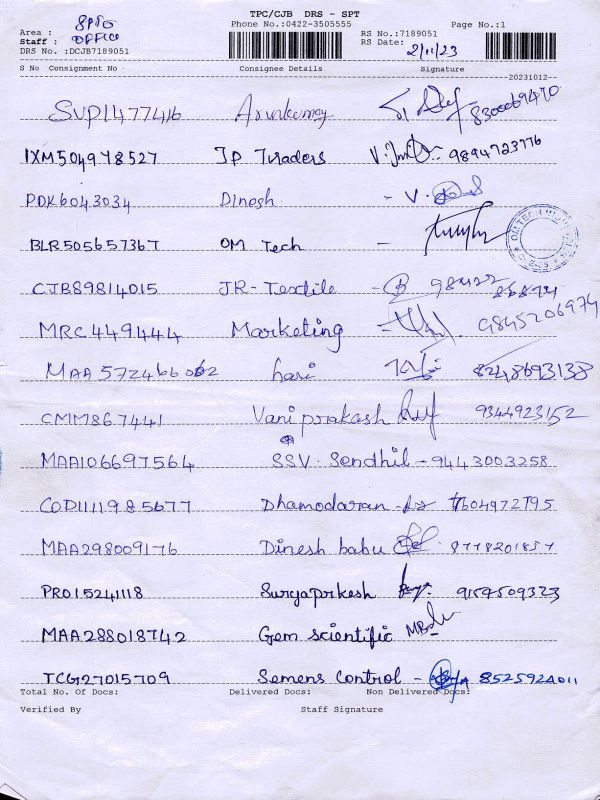 TPC/CJB DRS - SPT
Phone No.:0422-3505555 Page No.:1
Area : SPTO
Staff : OFFICE
DRS No. :DCJB7189051
RS No.:7189051
RS Date: 2/11/23
S No Consignment No Consignee Details Signature
20231012
SVP1477416 Arunkumar 8300069470
IXM504978527 JP Traders 9894723776
PDK6043034 Dinesh - V.
BLR505657367 OM Tech -
CJB89814015 JR-Textile -
MRC449444 Marketing - 9845206974
MAA572466062 hari 8248693138
CMM867441 Vani prakash 9344923152
MAA106697564 SSV. Sendhil - 9443003258
COD1111985677 Dhamodaran - 7604972795
MAA298009176 Dinesh babu 8778201857
PRO15241118 Suryaprkesh 9159509323
MAA288018742 Gem scientific
TCG27015709 Semens Control - 8525924011
Total No. Of Docs: Delivered Docs: Non Delivered Docs:
Verified By Staff Signature